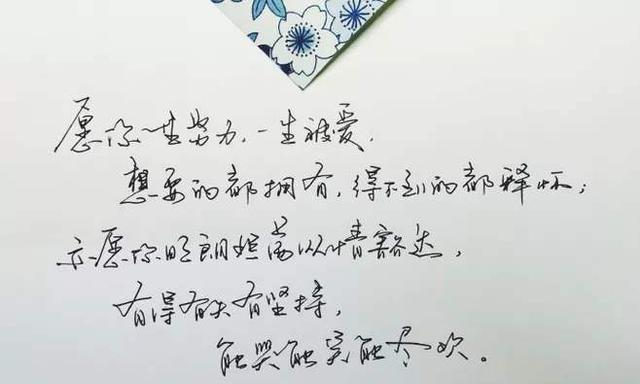 愿你一生努力,一生被爱,
想要的都拥有,得不到的都释怀;
亦愿你明朗坦荡以情豁达,
有得有失有坚持,
能哭能笑能尽欢。